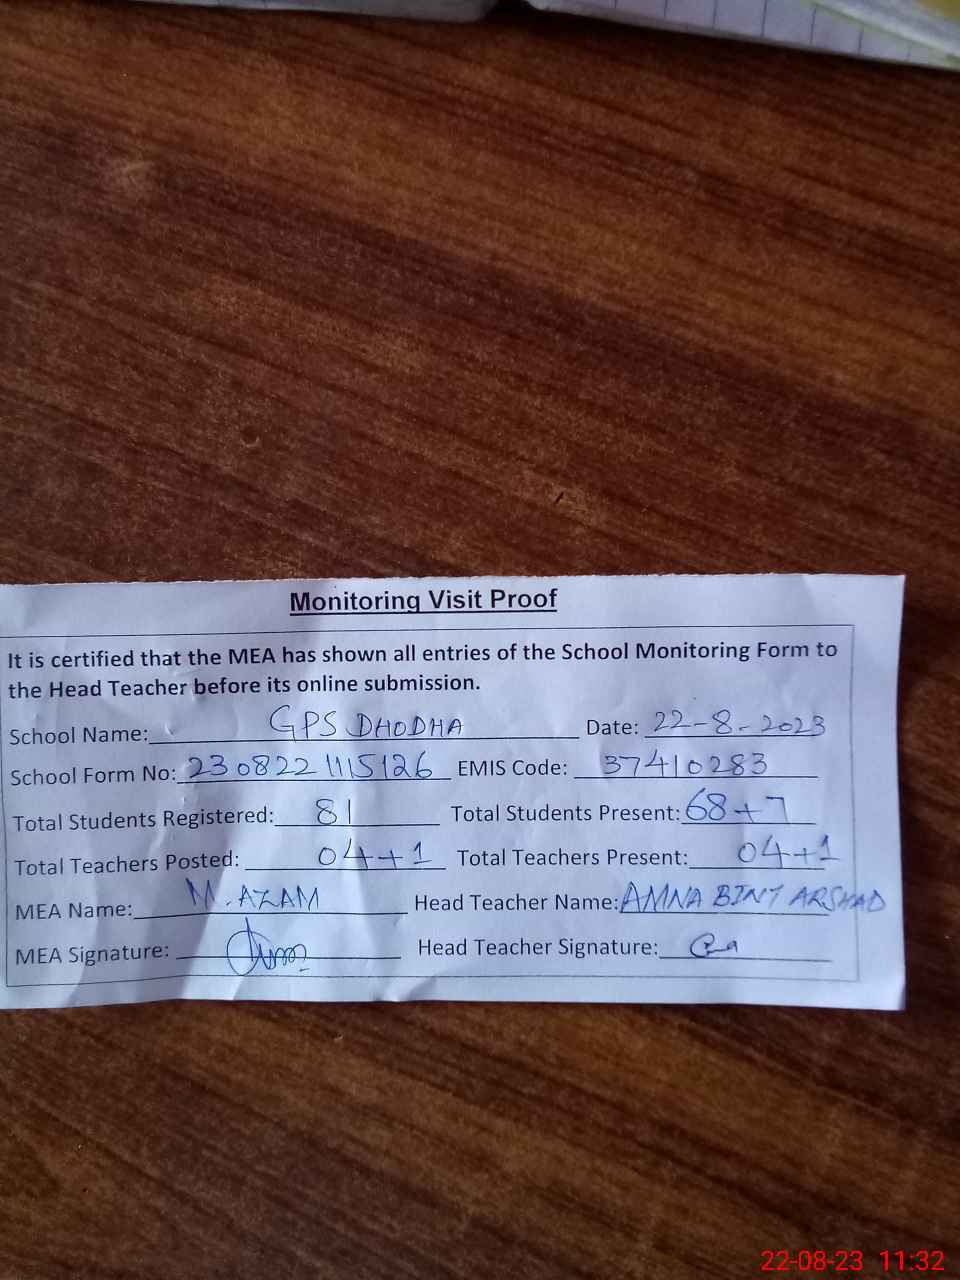 Monitoring Visit Proof
It is certified that the MEA has shown all entries of the School Monitoring Form to
the Head Teacher before its online submission.
School Name: GPS DHODHA Date: 22-8-2023
School Form No: 2308221115126 EMIS Code: 37410283
Total Students Registered: 81 Total Students Present: 68+7
Total Teachers Posted: 04+1 Total Teachers Present: 04+1
MEA Name: M.AZAM Head Teacher Name: AMNA BINT ARSHAD
MEA Signature: Head Teacher Signature:
22-08-23 11:32